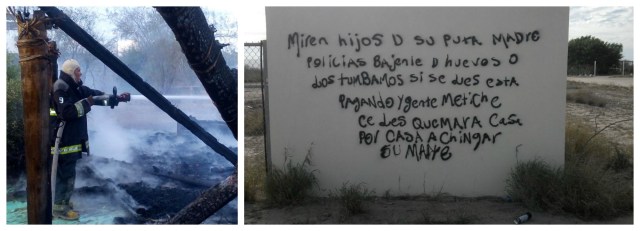 Miren hijos D su puta MADRE
POLICIAS BAJENLE D huevos O
LOS TUMBAMOS si se LES esta
PAGANDO Y gente METICHE
CE LES QUEMARA CASA
POR CASA A CHINGAR
SU MADRE